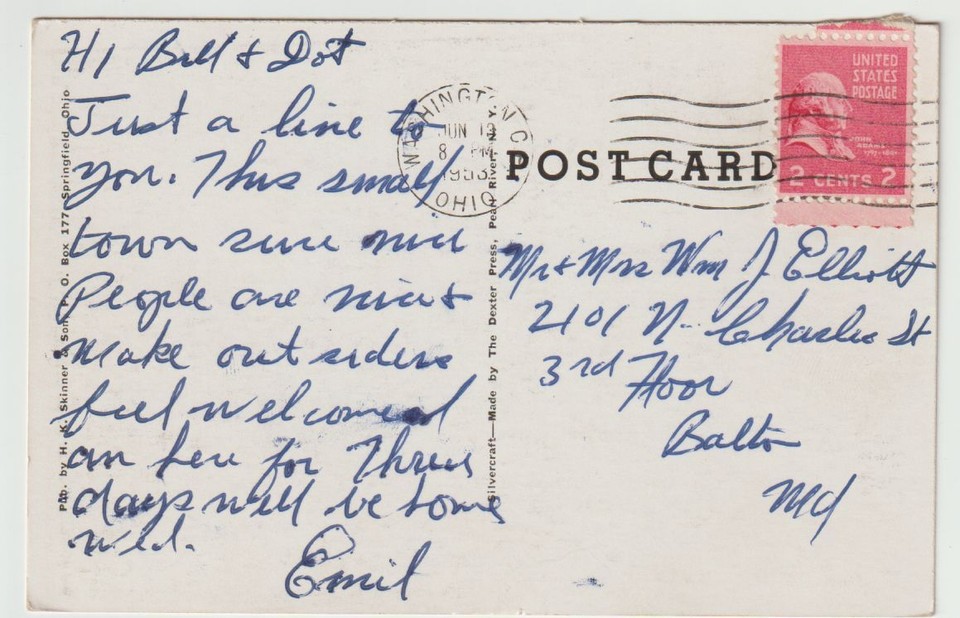 Hi Bill & Dot
Just a line to
you. This small
town sure nice
People are nice &
make outsiders
feel welcomed
am here for Three
days will be home
wed.
Emil
Pub. by H. K. Skinner & Son, P. O. Box 177, Springfield, Ohio
Silvercraft—Made by The Dexter Press, Pearl River, N. Y.
WASHINGTON C. H.
JUN 1
8 PM
1953
OHIO
POST CARD
UNITED
STATES
POSTAGE
JOHN
ADAMS
2 CENTS 2
Mr & Mrs Wm J Elliott
2101 N. Charles St
3rd Floor
Balto
Md